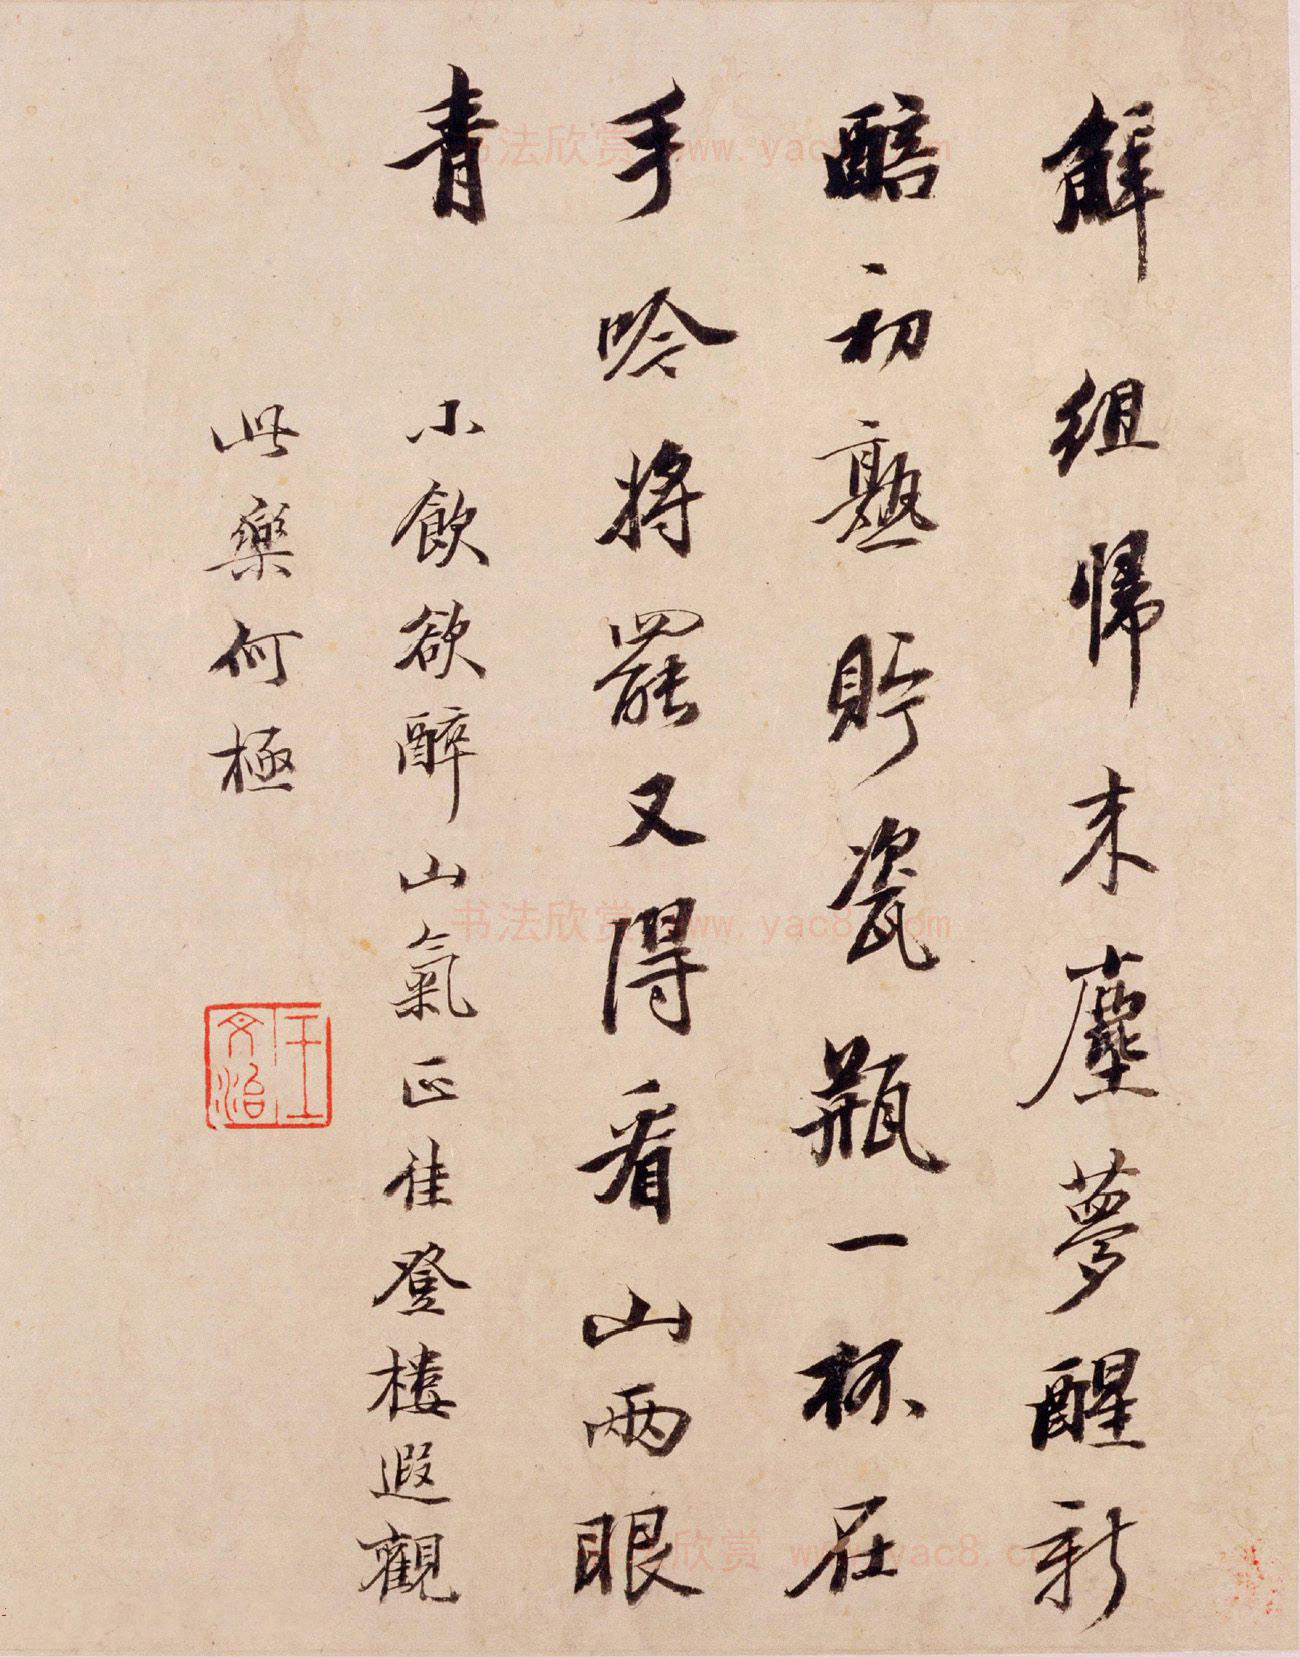 解組歸来塵夢醒新
醅初熟貯瓷瓶一杯在
手吟將罷又得看山兩眼
青 小飲欲醉山氣正佳登樓遐觀
此樂何極
王文治
书法欣赏 www.yac8.com
书法欣赏 www.yac8.com
欣赏 www.yac8.c